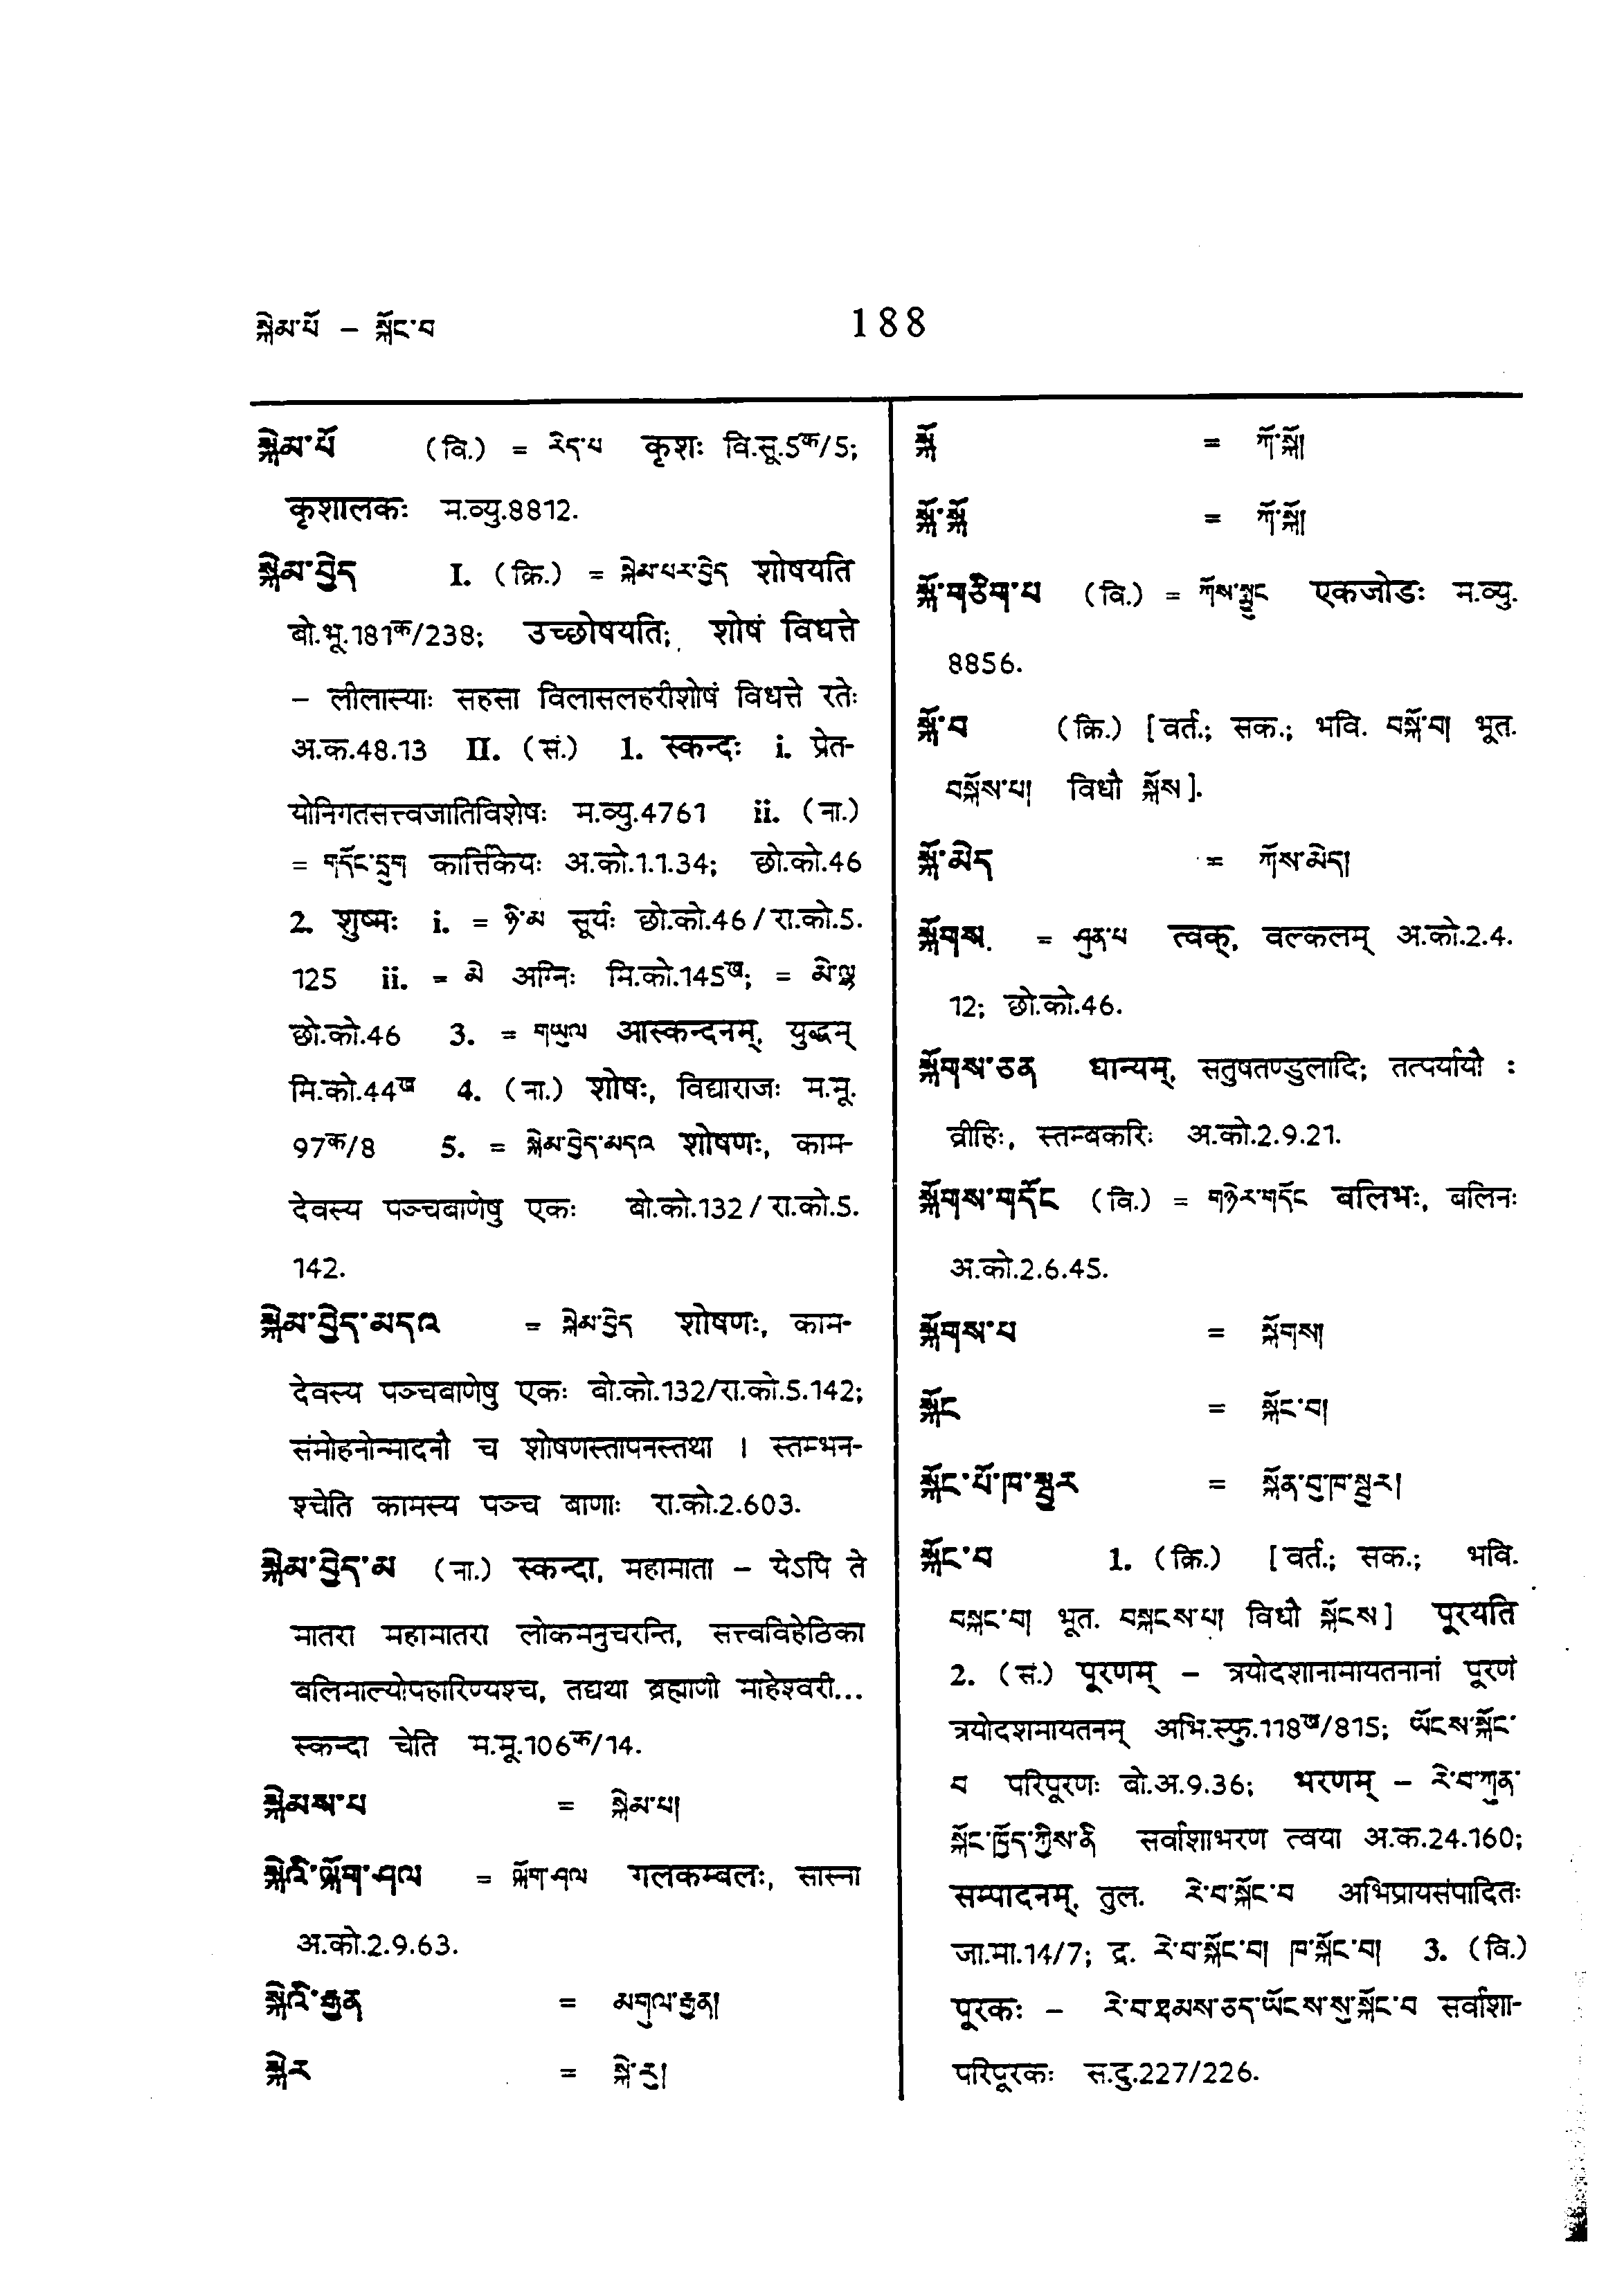 སྐེམ་པོ – སྐོང་བ
188
སྐེམ་པོ (वि.) = རིད་པ कृशः वि.सू.5क/5;
कृशालकः म.व्यु.8812.
སྐེམ་བྱེད I. (क्रि.) = སྐེམ་པར་བྱེད शोषयति
बो.भू.181क/238; उच्छोषयति; शोषं विधत्ते
– लीलास्याः सहसा विलासलहरीशोषं विधत्ते रतेः
अ.क.48.13 II. (सं.) 1. स्कन्दः i. प्रेत-
योनिगतसत्त्वजातिविशेषः म.व्यु.4761 ii. (ना.)
= གདོང་དྲུག कार्त्तिकेयः अ.को.1.1.34; छो.को.46
2. शुष्मः i. = ཉི་མ सूर्यः छो.को.46/रा.को.5.
125 ii. = མེ अग्निः मि.को.145ख; = མེ་ལྷ
छो.को.46 3. = གཡུལ आस्कन्दनम्, युद्धम्
मि.को.44ख 4. (ना.) शोषः, विद्याराजः म.मू.
97क/8 5. = སྐེམ་བྱེད་མདའ शोषणः, काम-
देवस्य पञ्चबाणेषु एकः बो.को.132/रा.को.5.
142.
སྐེམ་བྱེད་མདའ = སྐེམ་བྱེད शोषणः, काम-
देवस्य पञ्चबाणेषु एकः बो.को.132/रा.को.5.142;
संमोहनोन्मादनौ च शोषणस्तापनस्तथा । स्तम्भन-
श्चेति कामस्य पञ्च बाणाः रा.को.2.603.
སྐེམ་བྱེད་མ (ना.) स्कन्दा, महामाता – येऽपि ते
मातरा महामातरा लोकमनुचरन्ति, सत्त्वविहेठिका
बलिमाल्योपहारिण्यश्च, तद्यथा ब्रह्माणी माहेश्वरी...
स्कन्दा चेति म.मू.106क/14.
སྐེམས་པ = སྐེམ་པ།
སྐེའི་ལྐོག་ཤལ = ལྐོག་ཤལ गलकम्बलः, सास्ना
अ.को.2.9.63.
སྐེའི་རྒྱན = མགུལ་རྒྱན།
སྐེར = སྐེ་རུ།
སྐོ = ཀོ་སྐོ།
སྐོ་སྐོ = ཀོ་སྐོ།
སྐོ་གཅིག་པ (वि.) = ཀོས་སྨྱུང एकजोडः म.व्यु.
8856.
སྐོ་བ (क्रि.) [वर्त.; सक.; भवि. བསྐོ་བ། भूत.
བསྐོས་པ། विधौ སྐོས].
སྐོ་མེད = ཀོས་མེད།
སྐོགས. = ཤུན་པ त्वक्, वल्कलम् अ.को.2.4.
12; छो.को.46.
སྐོགས་ཅན धान्यम्, सतुषतण्डुलादि; तत्पर्यायौ :
व्रीहिः, स्तम्बकरिः अ.को.2.9.21.
སྐོགས་གདོང (वि.) = གཉེར་གདོང बलिभः, बलिनः
अ.को.2.6.45.
སྐོགས་པ = སྐོགས།
སྐོང = སྐོང་བ།
སྐོང་པོ་ཁ་སྦྱར = སྐོན་བུ་ཁ་སྦྱར།
སྐོང་བ 1. (क्रि.) [वर्त.; सक.; भवि.
བསྐང་བ། भूत. བསྐངས་པ། विधौ སྐོངས] पूरयति
2. (सं.) पूरणम् – त्रयोदशानामायतनानां पूरणं
त्रयोदशमायतनम् अभि.स्फु.118ख/815; ཡོངས་སྐོང་
བ परिपूरणः बो.अ.9.36; भरणम् – རེ་བ་ཀུན་
སྐོང་ཁྱོད་ཀྱིས་ནི सर्वाशाभरण त्वया अ.क.24.160;
सम्पादनम्, तुल. རེ་བ་སྐོང་བ अभिप्रायसंपादितः
जा.मा.14/7; द्र. རེ་བ་སྐོང་བ། ཁ་སྐོང་བ། 3. (वि.)
पूरकः – རེ་བ་ཐམས་ཅད་ཡོངས་སུ་སྐོང་བ सर्वाशा-
परिपूरकः स.दु.227/226.